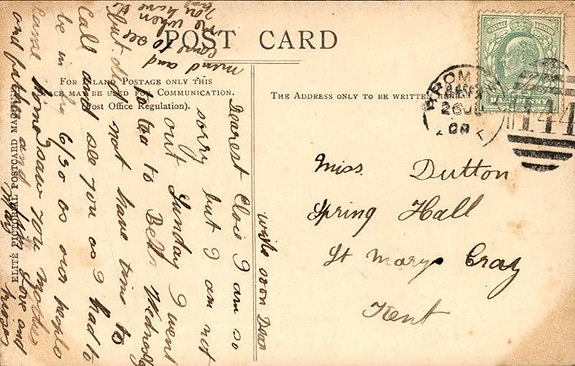 POST CARD
FOR INLAND POSTAGE ONLY THIS
SPACE MAY BE USED FOR COMMUNICATION.
(Post Office Regulation).
THE ADDRESS ONLY TO BE WRITTEN
BROMLEY
26
08
144
HALF PENNY
Miss Dutton
Spring Hall
St Marys Cray
Kent
Dearest Elsie I am so
sorry but I am not
out Sunday I went
to tea to Bell Wednesday
but I did not have time to
Call and see you as I had to
be in by 6/30 as our people
came home saw your mother
and father and love and
kisses
write soon Dear
mind and
come to see
me when
you have
ELITE PICTORIAL POSTCARD